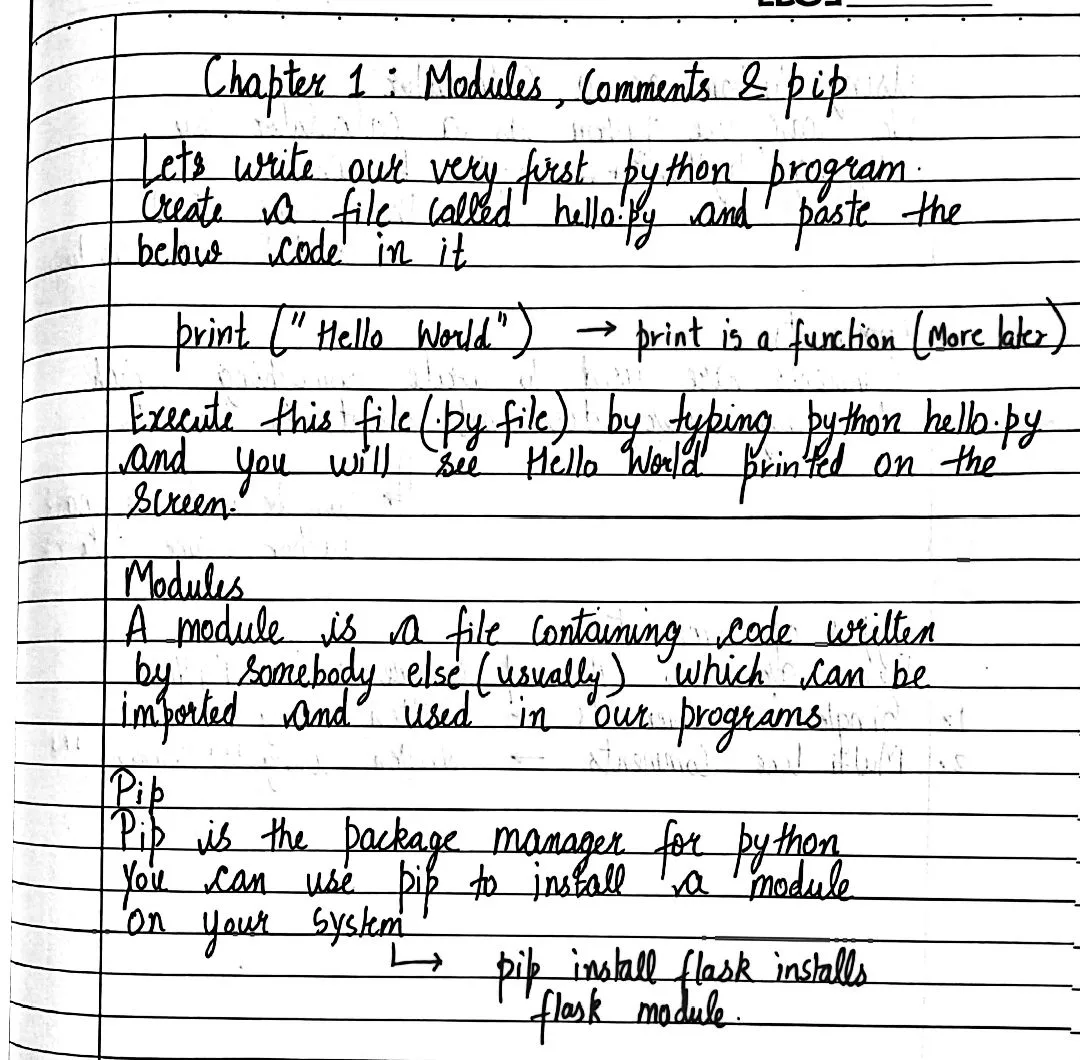 Chapter 1 : Modules, Comments & pip
Lets write our very first python program.
Create a file called hello.py and paste the
below code in it
print ("Hello World") → print is a function (More later)
Execute this file (.py file) by typing python hello.py
and you will see Hello World printed on the
screen.
Modules
A module is a file containing code written
by somebody else (usually) which can be
imported and used in our programs
Pip
Pip is the package manager for python
You can use pip to install a module
on your system
↳ pip install flask installs
flask module.